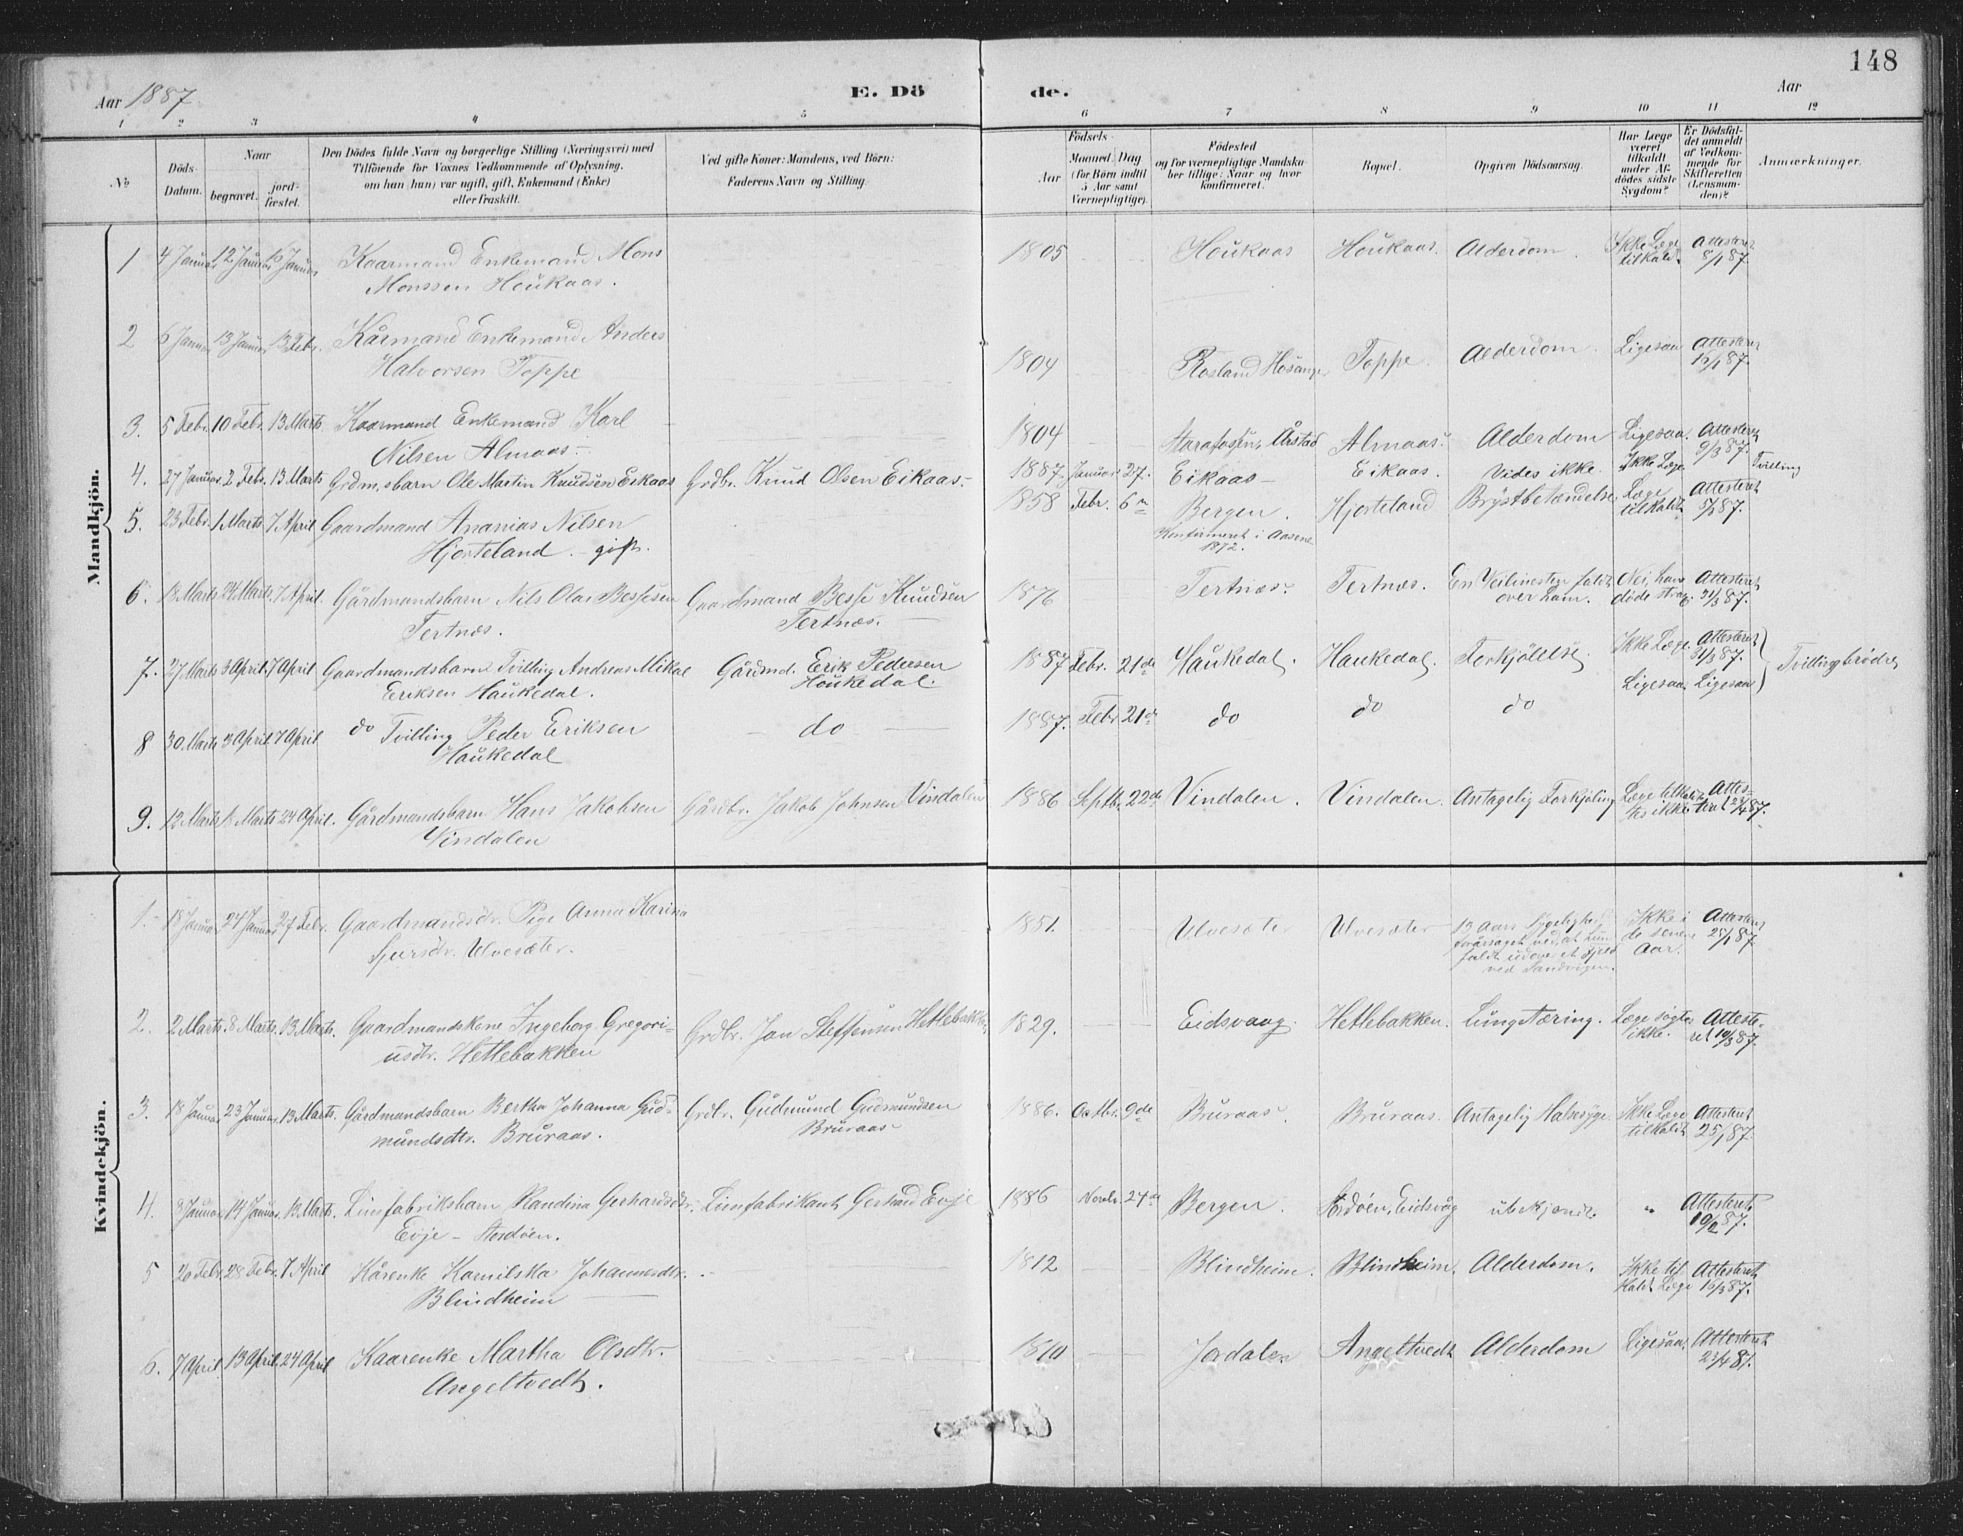 148
Aar 1887
E. Dö de.
Aar
1 2 3 4 5 6 7 8 9 10 11 12
No
Döds-Datum.
Naar
begravet.
jord-fæstet.
Den Dödes fulde Navn og borgerlige Stilling (Næringsvei) med
Tilföiende for Voxnes Vedkommende af Oplysning,
om han (hun) var ugift, gift, Enkemand (Enke)
eller fraskilt.
Ved gifte Koner: Mandens, ved Börn:
Faderens Navn og Stilling.
Födsels-
Aar
Maaned. Dag
(for Börn indtil
5 Aar samt
Værnepligtige).
Födested
og for værnepligtige Mandska-
ber tillige: Naar og hvor
konfirmeret.
Bopæl.
Opgiven Dödsaarsag.
Har Læge
været
tilkaldt
under Af-
dödes sidste
Sygdom?
Er Dödsfal-
det anmeldt
af Vedkom-
mende for
Skifteretten
(Lensman-
den)?
Anmærkninger.
Mandkjön.
1 4 Januar 12 Januar Januar Kaarmand Enkemand Mons 1805 Houkaas Houkaas. Alderdom. Ikke Læge Attesteret
Monssen Houkaas. tilkaldt. 8/1 87.
2 6 Januar 13 Januar 13 Febr. Kårmand Enkemand Anders 1804 Rosland Hosanger Toppe. Alderdom. Ligesaa Attesteret
Halvorsen Toppe 87.
3. 5 Febr. 10 Febr. 13 Marts Kaarmand Enkemand Karl 1804 Aarstad Almaas. Alderdom Ligesaa. Attesteret
Nilsen Almaas. 9/3 87.
4. 27 Januar 2 Febr. 13 Marts Grdm.sbarn Ole Martin Knudsen Eikaas Grdbr. Knud Olsen Eikaas. 1887 Januar 27. Eikaas Eikaas. Vides ikke. Ikke Læge Tvilling
5. 23 Febr. 1 Marts 7 April Gaardmand Ananias Nilsen 1858 Febr. 6 Bergen. Hjorteland Brystbetændelse Læge Attesteret
Hjorteland. gift. Konfirmeret i Aasene tilkaldt 87.
1872.
6. 18 Marts 24 Marts 7 April Gårdmandsbarn Nils Olai Bessesen Gaardmand Besse Knudsen 1876 Tertnæs. Tertnæs. En faldt Nei, han Attesteret
Tertnæs. Tertnæs. over ham. døde strax. 31/3 87.
7. 27 Marts 3 April 7 April Gaardmandsbarn Tvilling Andreas Mikal Gårdmd. Erik Pedersen 1887 Febr. 21de Haukedal. Haukedal. Forkjölelse Ikke Læge Attesteret
Eriksen Haukedal. Houkedal. 31/3 87. Tvillingbrødre
8 30 Marts 3 April 7 April do Tvilling Peder Eriksen do 1887. Febr 21de do do do Ligesaa Ligesaa
Haukedal
9. 12 Marts Marts 24 April. Gårdmandsbarn Hans Jakobsen Gårdbr. Jakob Johnsen Vindalen 1886 Septbr. 22de Vindalen. Vindalen. Antagelig Forkjöling Læge tilkaldtes ikke Attesteret 87.
Vindalen
Kvindekjön.
1. 18 Januar 24 Januar 27 Febr. Gaardmandsdtr. Pige Anna Karina 1851. Ulvesæter Ulvesæter 13 Aars Sygelighed Ikke i Attesteret
Sjursdtr. Ulvesæter. forårsaget ved, at hun de senere 25/1 87
faldt udover et Fjeld Aar.
ved Sandvigen.
2. 2 Marts 8 Marts. 13 Marts. Gaardmandskone Ingeborg Gregori- Grdbr. Jan Steffensen Hetlebakken 1829. Eidsvaag. Hetlebakken. Lungetæring. Læge søgtes Atteste-
usdtr. Hetlebakken ikke. ret 10/3 87.
3. 18 Januar 23 Januar 13 Marts. Gårdmandsbarn Bertha Johanna Gud- Grdbr. Gudmund Gudmundsen 1886. Octbr. 9de Bruraas. Bruraas. Antagelig Halssyge. Ikke Læge Attesteret
mundsdtr. Bruraas. Bruraas tilkaldt 25/1 87.
4. 8 Januar 14 Januar 13 Marts. Limfabriksbarn Gerhardsdtr. Limfabrikant Gerhard Evje 1886 Novbr. 24de Bergen. Eidsvåg ubekjendt. " Attesteret
Evje - 19/2 87.
5 20 Febr. 28 Febr. 7 April Kårenke Kamilska Johannesdtr. 1812 Blindheim. Blindheim. Alderdom. Ikke til- Attesteret
Blindheim kaldt Læge 16/3 87.
6. 7 April 13 April. 24 April Kaarenke Martha Olsdtr. 1810 Jordalen Angeltvedt Alderdom Ligesaa. Attesteret
Angeltvedt. 87.